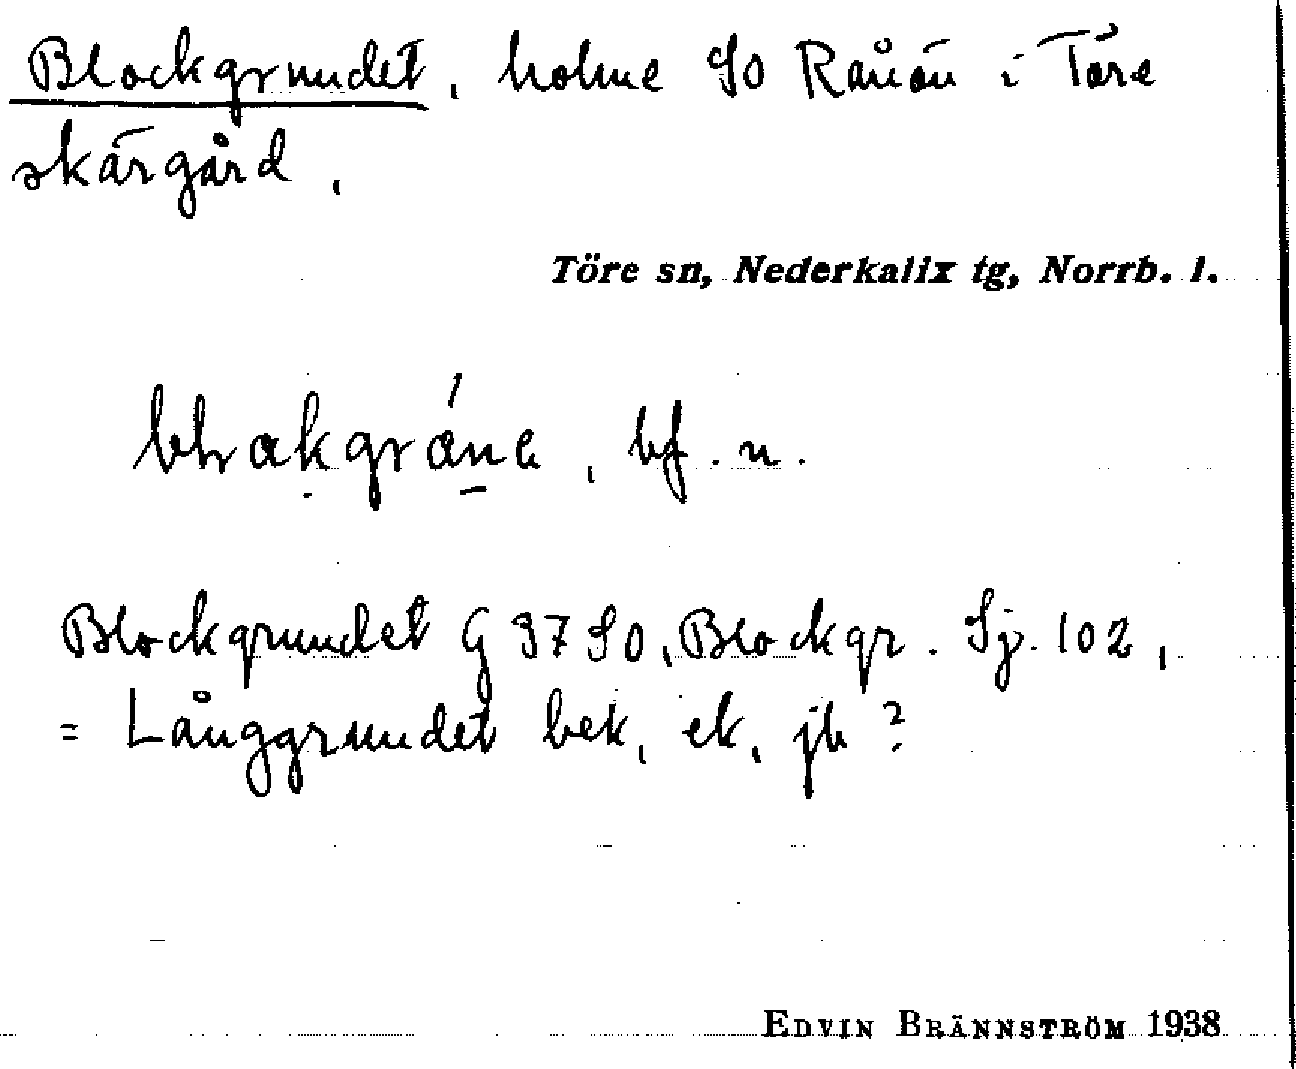 Blockgrundet, holme SO Rånön i Töre
skärgård,
Töre sn, Nederkalix tg, Norrb. l.
bf. n.
Blockgrundet G 37 SO, Blockgr. Sj. 102,
= Långgrundet bek, ek, jb?
EDVIN BRÄNNSTRÖM 1938